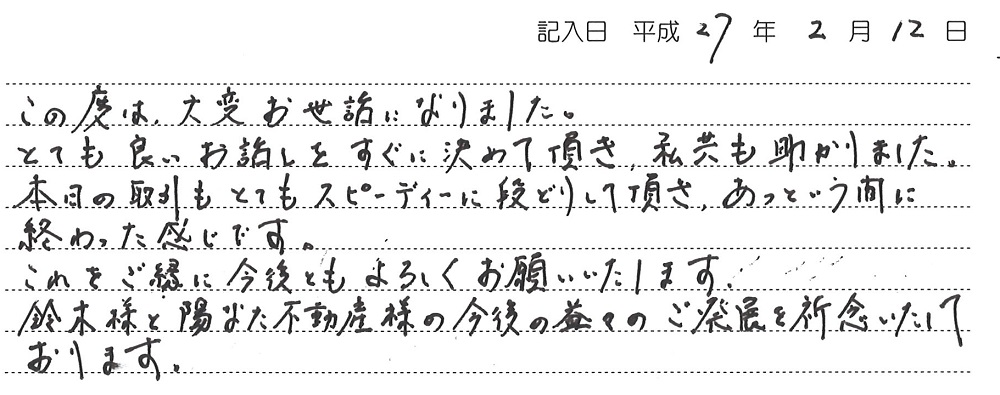 記入日 平成 27 年 2 月 12 日
この度は、大変お世話になりました。
とても良いお話しをすぐに決めて頂き、私共も助かりました。
本日の取引もとてもスピーディーに段どりして頂き、あっという間に
終わった感じです。
これをご縁に今後ともよろしくお願いいたします。
鈴木様と陽なた不動産様の今後の益々のご発展を祈念いたして
おります。